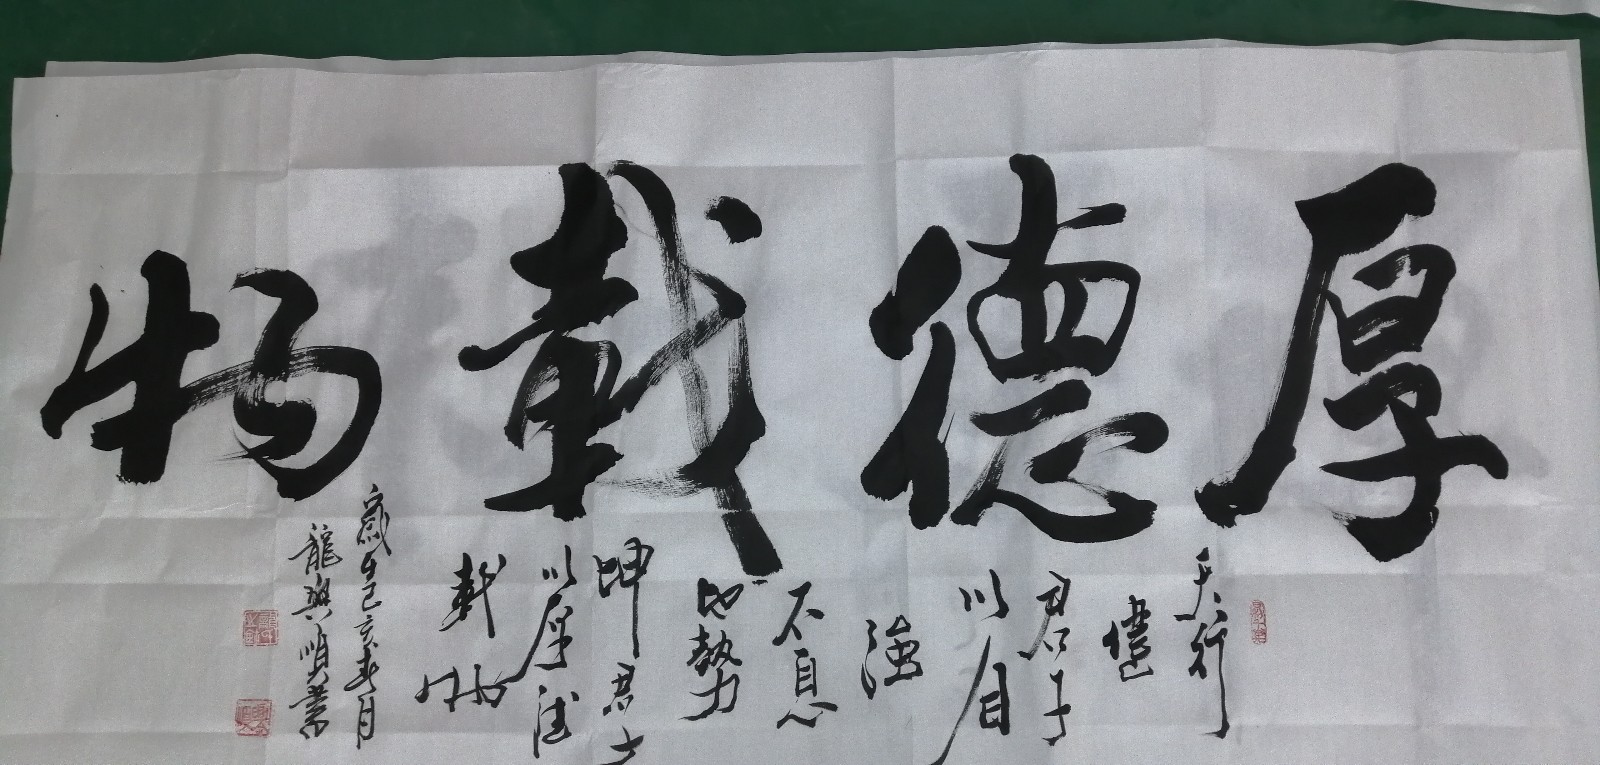 厚德載物
天行
健
君子
以自
強
不息
地勢
坤君子
以厚德
載物
歲在己亥春月
龍興順業